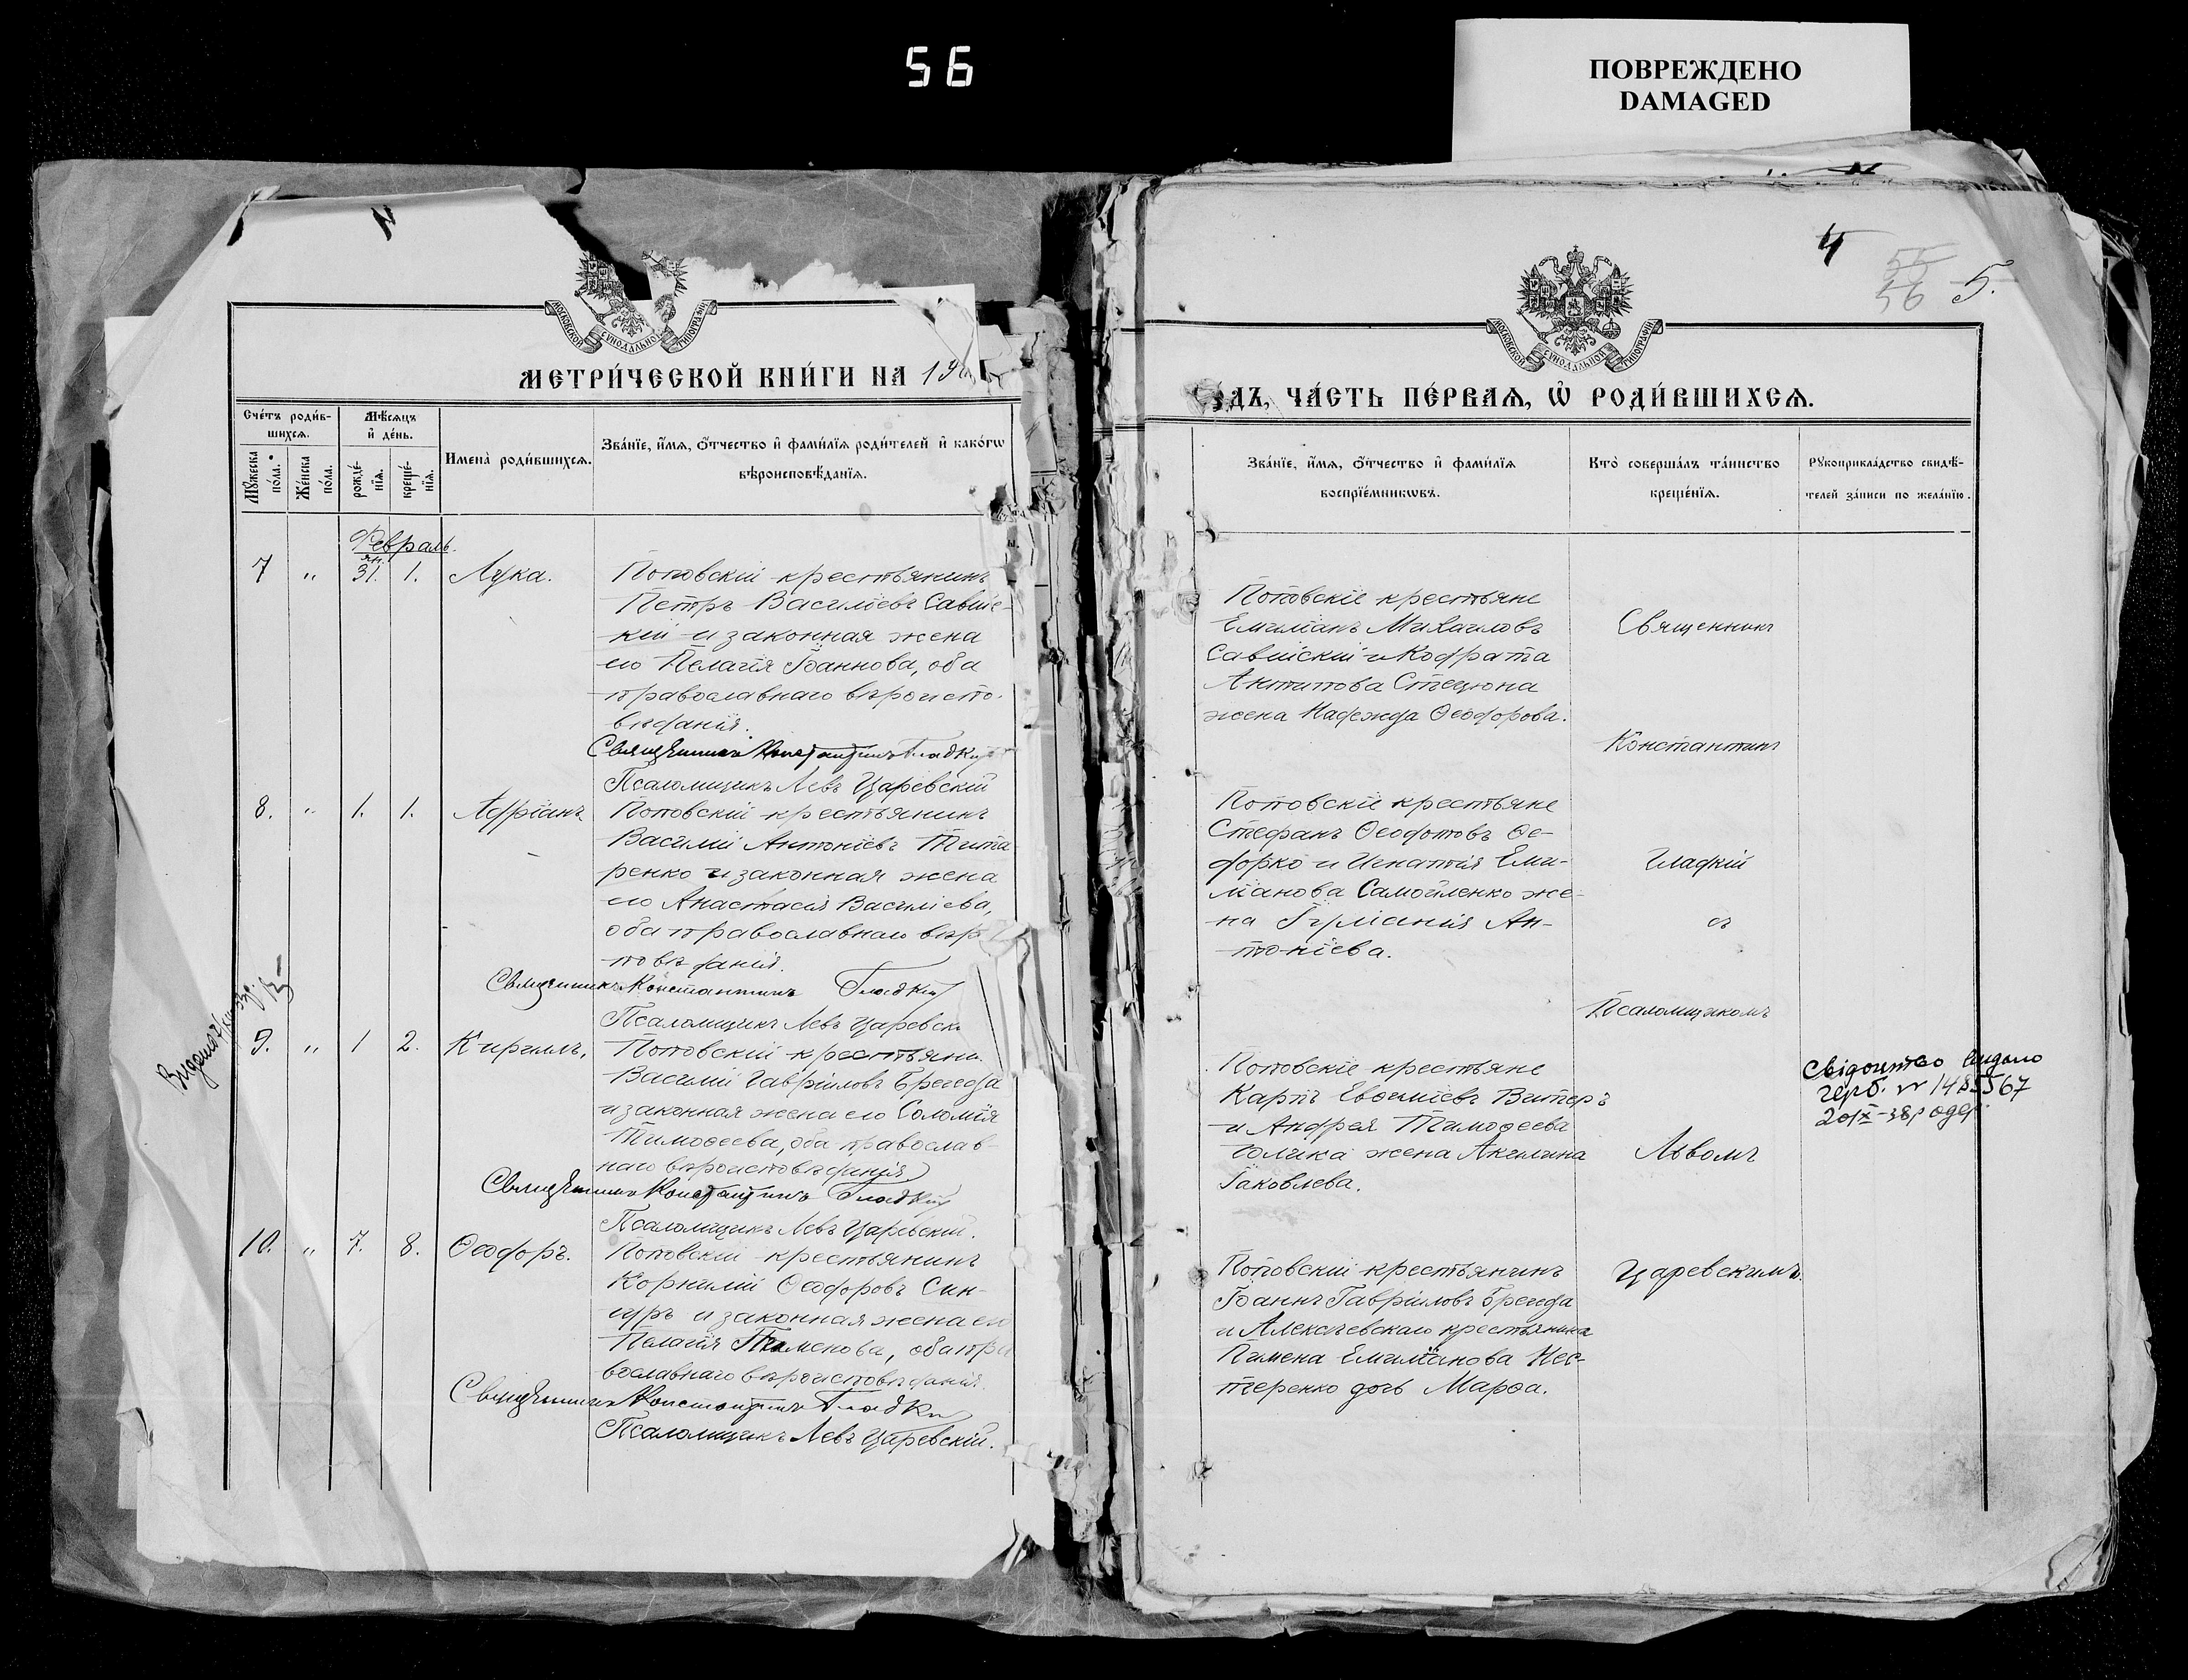 56
ПОВРЕЖДЕНО
DAMAGED
МОСКОВСКОЙ СѴНОДАЛЬНОЙ ТИПОГРАФІИ
МЕТРИ́ЧЕСКОЙ КНИ́ГИ НА 19
Сче́тъ роди́в-
шихсѧ.
Мѣ́сѧцъ
и҆ де́нь.
Мꙋ́жеска
по́ла.
Же́нска
по́ла.
рожде́-
нїѧ.
креще́-
нїѧ.
Имена̀ роди́вшихсѧ.
Зва́нїе, и҆́мѧ, ѻ҆́тчество и҆ фами́лїѧ роди́телей и҆ како́гѡ
вѣроисповѣ́данїѧ.
Февраль.
7 " ян. 31. 1. Лука.
Поповскій крестьянинъ
Петръ Василіевъ Савiс-
кій и законная жена
его Пелагія Іоаннова, оба
православнаго вѣроиспо-
вѣданія.
Священникъ Константинъ Гладкій
Псаломщикъ Левъ Царевскій
8. " 1. 1. Адріанъ
Поповскій крестьянинъ
Василій Антоніевъ Тита
ренко и законная жена
его Анастасія Василіева,
оба православнаго вѣро
повѣданія.
Священникъ Константинъ Гладкій
Псаломщикъ Левъ Царевск
9. " 1 2. Кириллъ.
Поповскій крестьяни
Василій Гавріиловъ Брегеда
и законная жена его Соломія
Тимоѳеева, оба православ-
наго вѣроисповѣданія
Священникъ Константинъ Гладкій
Псаломщикъ Левъ Царевскій.
10. " 7. 8. Ѳеодоръ.
Поповскій крестьянинъ
Корнилій Ѳеодоровъ Син-
и законная жена его
Пелагія Пименова, оба пра
вославнаго вѣроисповѣданія.
Священникъ Константинъ Гладкі
Псаломщикъ Левъ Царевскій.
4
55
56
5.
МОСКОВСКОЙ СѴНОДАЛЬНОЙ ТИПОГРАФІИ
ДЪ, ЧА́СТЬ ПЕ́РВАѦ, Ѡ҆ РОДИ́ВШИХСѦ.
Зва́нїе, и҆́мѧ, ѻ҆́тчество и҆ фами́лїѧ
воспрїе́мникѡвъ.
Кто̀ соверша́лъ та́инство
креще́нїѧ.
Рꙋкоприкла́дство свидѣ́-
телей за́писи по жела́нїю.
Поповскіе крестьяне
Емиліанъ Михаиловъ
Савiйскій и Кодрата
Антипова Стецюна
жена Надежда Ѳеодорова.
Священникъ
Константинъ
Поповскіе крестьяне
Стефанъ Ѳеодотовъ Ѳе-
дорко и Игнатія Еми-
ліанова Самойленко же-
на Іуліанія Ан-
тоніева.
Гладкій
съ
Псаломщикомъ
Поповскіе крестьяне
Карпъ Евѳиміевъ Витеръ
и Андрея Тимоѳеева
жена Акилина
Іаковлева.
Львомъ
Свідоцтво видано
герб. № 1485567
Поповскій крестьянинъ
Іоаннъ Гавріиловъ Брегеда
и Алексѣевскаго крестьянина
Пимена Емиліанова Нес-
теренко дочь Марѳа.
Царевскимъ.